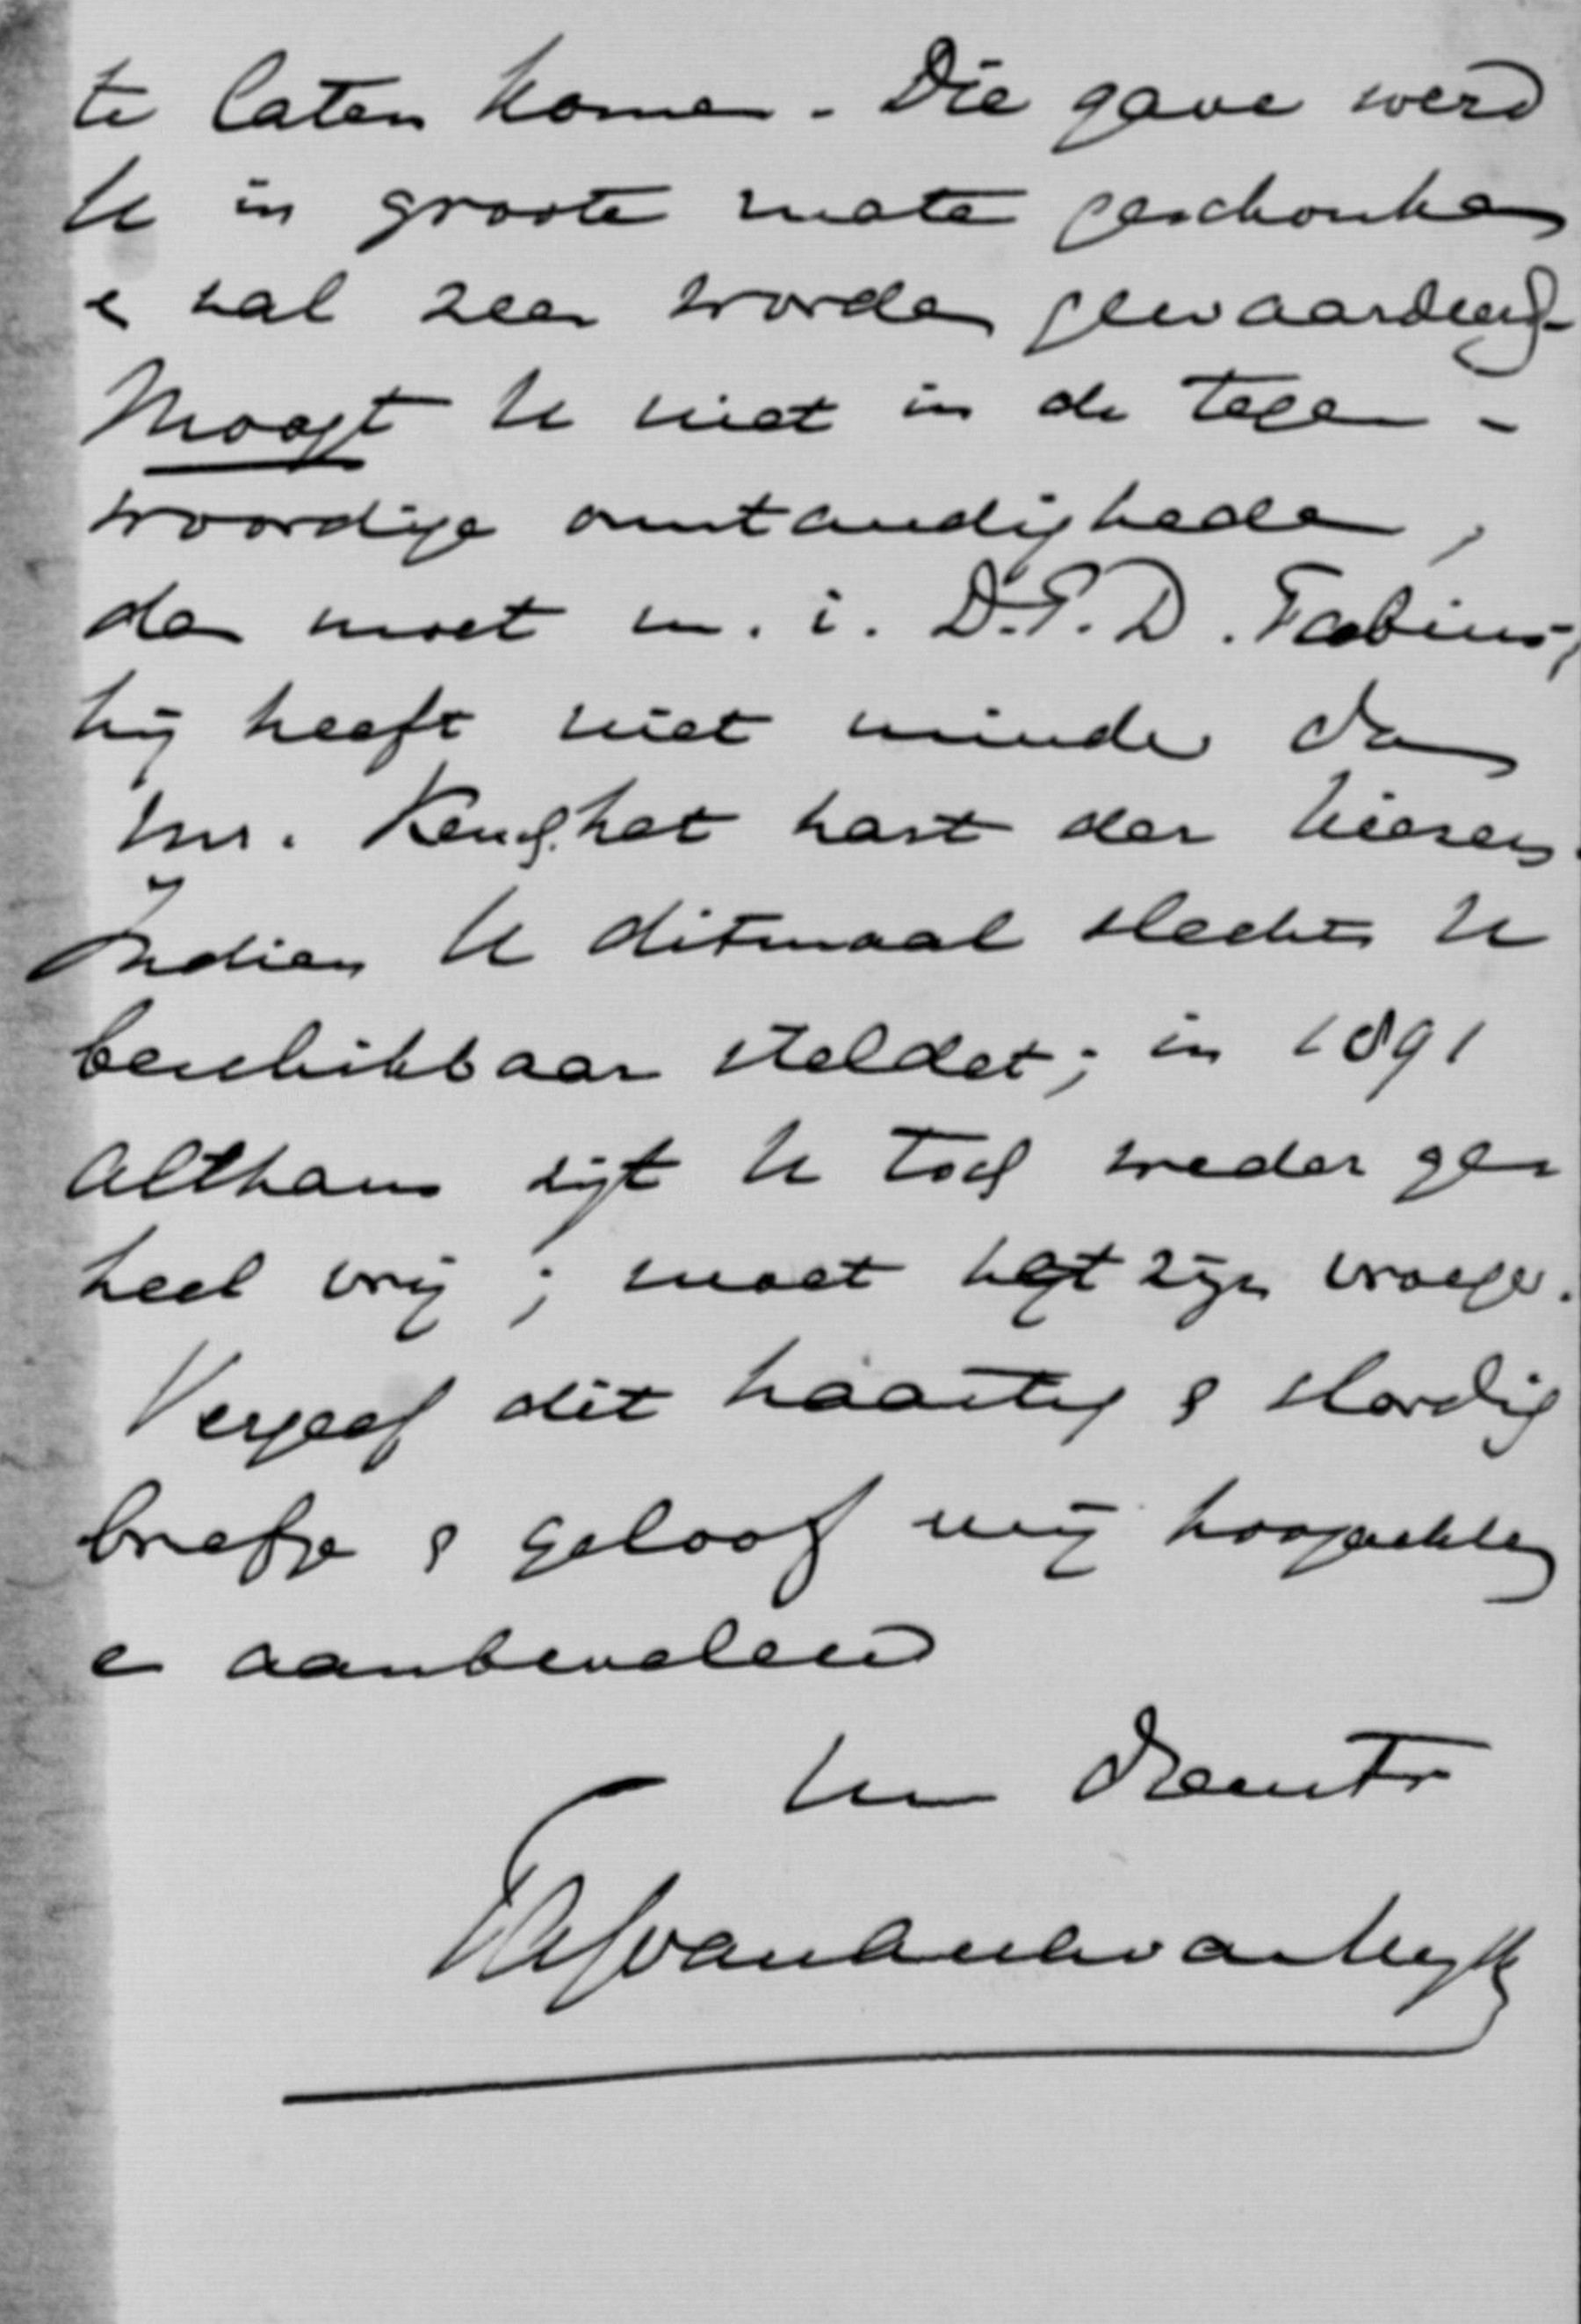 te laten komen. Die gave werd
U in groote mate geschonken
en zal zeer worden gewaardeerd.
Moogt U niet in de tegen-
woordige omstandigheden,
dan moet m. i. D. P. D. Fabius;
hij heeft niet minder dan
Mr. Keuch. het hart der kiezers.
Indien U ditmaal slechts U
beschikbaar steldet; in 1891
althans zijt U toch weder ge-
heel vrij; moet het zijn vroeger.
Vergeef dit haastig & slordig
briefje & geloof mij hoogachtend
en aanbevelend
Uw